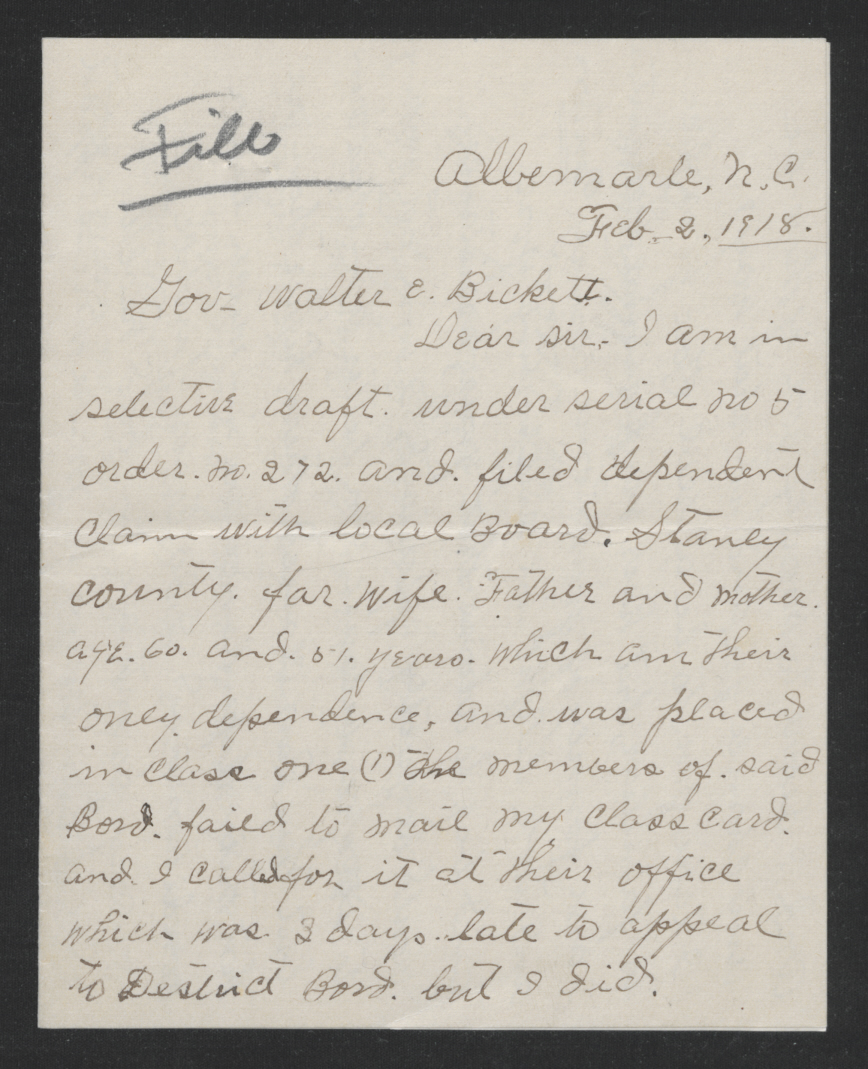 File
Albemarle, N.C.
Feb. 2, 1918.
Gov- Walter E. Bickett.
Dear sir,- I am in
selective draft. under serial no 5
order. no. 272. and. filed dependent
claim with local Board. Stanly
county. for. wife. Father and mother.
age. 60. and. 51. years. which am their
only dependence, and was placed
in class one (1) the members of. said
Bord. failed to mail my class card.
and I called for it at their office
which was 3 days late to appeal
to Destrict Bord. but I did.